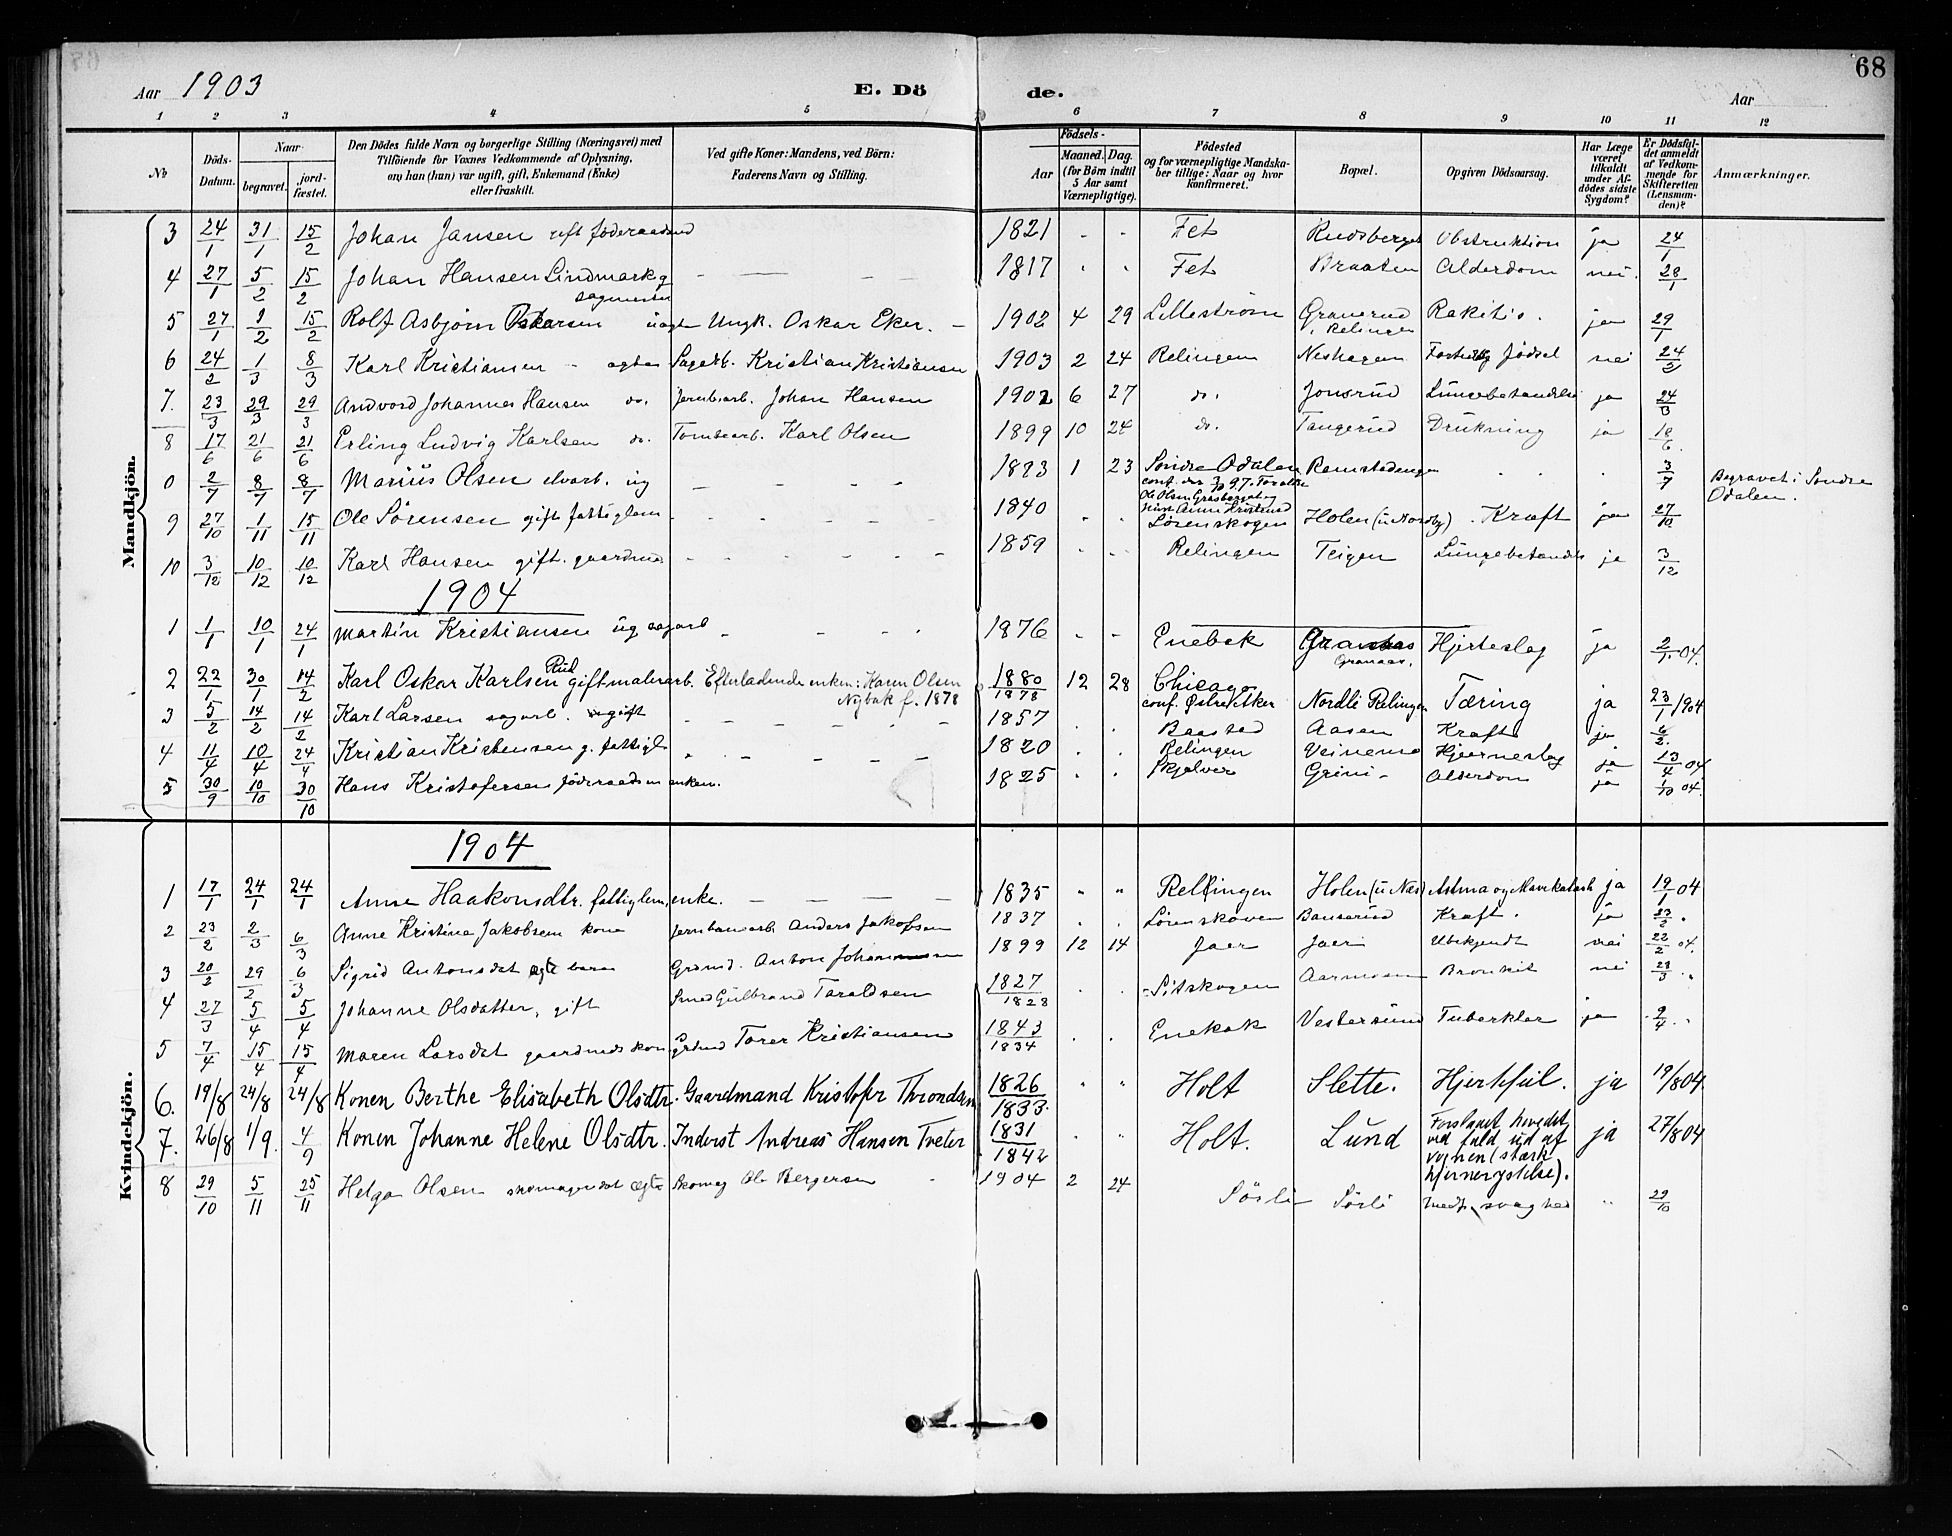 68
Aar 1903 E. Dö de. Aar
1 2 3 4 5 6 7 8 9 10 11 12
No Döds-Datum. Naar begravet. jordfæstet. Den Dödes fulde Navn og borgerlige Stilling (Næringsvei) med Tilföiende for Voxnes Vedkommende af Oplysning, om han (hun) var ugift, gift, Enkemand (Enke) eller fraskilt. Ved gifte Koner: Mandens, ved Börn: Faderens Navn og Stilling. Födsels- Aar Maaned. Dag. (for Börn indtil 5 Aar samt Værnepligtige). Födested og for værnepligtige Mandskaber tillige: Naar og hvor konfirmeret. Bopæl. Opgiven Dödsaarsag. Har Læge været tilkaldt under Afdödes sidste Sygdom? Er Dödsfaldet anmeldt af Vedkommende for Skifteretten (Lensmanden)? Anmærkninger.
Mandkjön.
3 24/1 31/1 15/2 Johan Jansen föderaadsmd 1821 - - Fet Rudsberget Obstruktion ja 24/1
4 27/1 5/2 15/2 Johan Hansen Lindmark g sagmester - - - - 1817 Fet Braaten Alderdom nei. 28/1
5 27/1 9/2 15/2 Rolf Asbjørn Oskarsen uægte Ungk. Oskar Eker. - 1902 4 29 Lilleström Granerud i Relingen Rakitis. ja 29/1
6 24/2 1/3 8/3 Karl Kristiansen - ægte Sagarb. Kristian Kristiansen 1903 2 24 Relingen Neshagen Fortidlig födsel nei 24/2
7. 23/3 29/3 29/3 Andvord Johannes Hansen do. Jernb.arb. Johan Hansen 1902 6 27 do. Jonsrud Lungebetændelse ja 24/3
8 17/6 21/6 21/6 Erling Ludvig Karlsen do. Tomtearb. Karl Olsen 1899 10 24 do. Tangerud Drukning ja 18/6
0 2/7 8/7 8/7 Marius Olsen elvarb. ug - - - - - 1883 1 23 Söndre Odalen conf. der 97. Ramstadengen 3/7 Begravet i Söndre Odalen.
9 27/10 1/11 15/11 Ole Sörensen gift fattiglem - - - - - 1840 Lörenskogen Holen (u Nordby) Kræft ja 27/10
10 3/12 10/12 10/12 Karl Hansen gift. gaardmd - - - - - 1859 Relingen Teigen Lungebetændelse ja 3/12
1904
1 1/1 10/1 24/1 Martin Kristiansen ug sagarb - - - - 1876 - - Enebak Granaas. Hjerteslag ja 2/1 04.
2 22/1 30/1 14/2 Karl Oskar Karlsen Rud gift malerarb. Efterladende enken: Karen Olsen Nybak f. 1878 1880 1878 12 28 Chicago conf. Östre Aker Nordli Relingen Tæring ja 23/1 1904
3 5/2 14/2 14/2 Karl Larsen sagarb. gift - - - - - 1857 Baastad Aasen Kræft ja 6/2.
4 11/4 10/4 24/4 Kristian Kristensen g. fattigl - - - - - 1820 Relingen Veinemo Hjerneslag ja 13/4 04
5 30/9 10/10 30/10 Hans Kristofersen föderaadsm enkem. 1825 Skjolver Grini - Alderdom ja 1/10 04.
Kvindekjön.
1904
1 17/1 24/1 24/1 Anne Haakonsdtr. fattiglem, enke. - - - - 1835 " " Relingen Holen (u Næs) Astma og Mavekatarh ja 19/1 04
2 23/2 2/3 6/3 Anne Kristine Jakobsen kone jernbanearb Anders Jakobsen 1837 Lörenskoven Banserud Kræft. ja 23/2 "
3 20/2 29/2 6/3 Sigrid Antonsdat ægte barn Grdmd. Anton Johannesen 1899 12 14 Jaer Jaer Ubekjendt nei 22/2 04.
4 27/3 5/4 5/4 Johanne Olsdatter, gift Smed Gulbrand Taraldsen 1827 1828 Sitskogen Aarmosen Bronkit nei 28/3 "
5 7/4 15/4 15/4 Maren Larsdat gaardmds kone Grdmd Torer Kristiansen 1843 1834 Enebak Vestersund Tuberkler ja 9/4 "
6. 19/8 24/8 24/8 Konen Berthe Elisabeth Olsdtr. Gaardmand Kristofer Throndsen 1826 1833. " " Holt Slette. Hjertfeil. ja 19/8 04
7. 26/8 1/9. 4/9 Konen Johanne Helene Olsdtr. Inderst Andreas Hansen Tveter 1831 1842 " " Holt. Lund Forslaaet hovedet ved fald ud af vognen (stærk hjernerystelse). ja 27/8 04
8 29/10 5/11 25/11 Helga Olsen skomagerdat ægte Skomag Ole Bergersen 1904 2 24 Sörli Sörli Medf. svaghed " 29/10